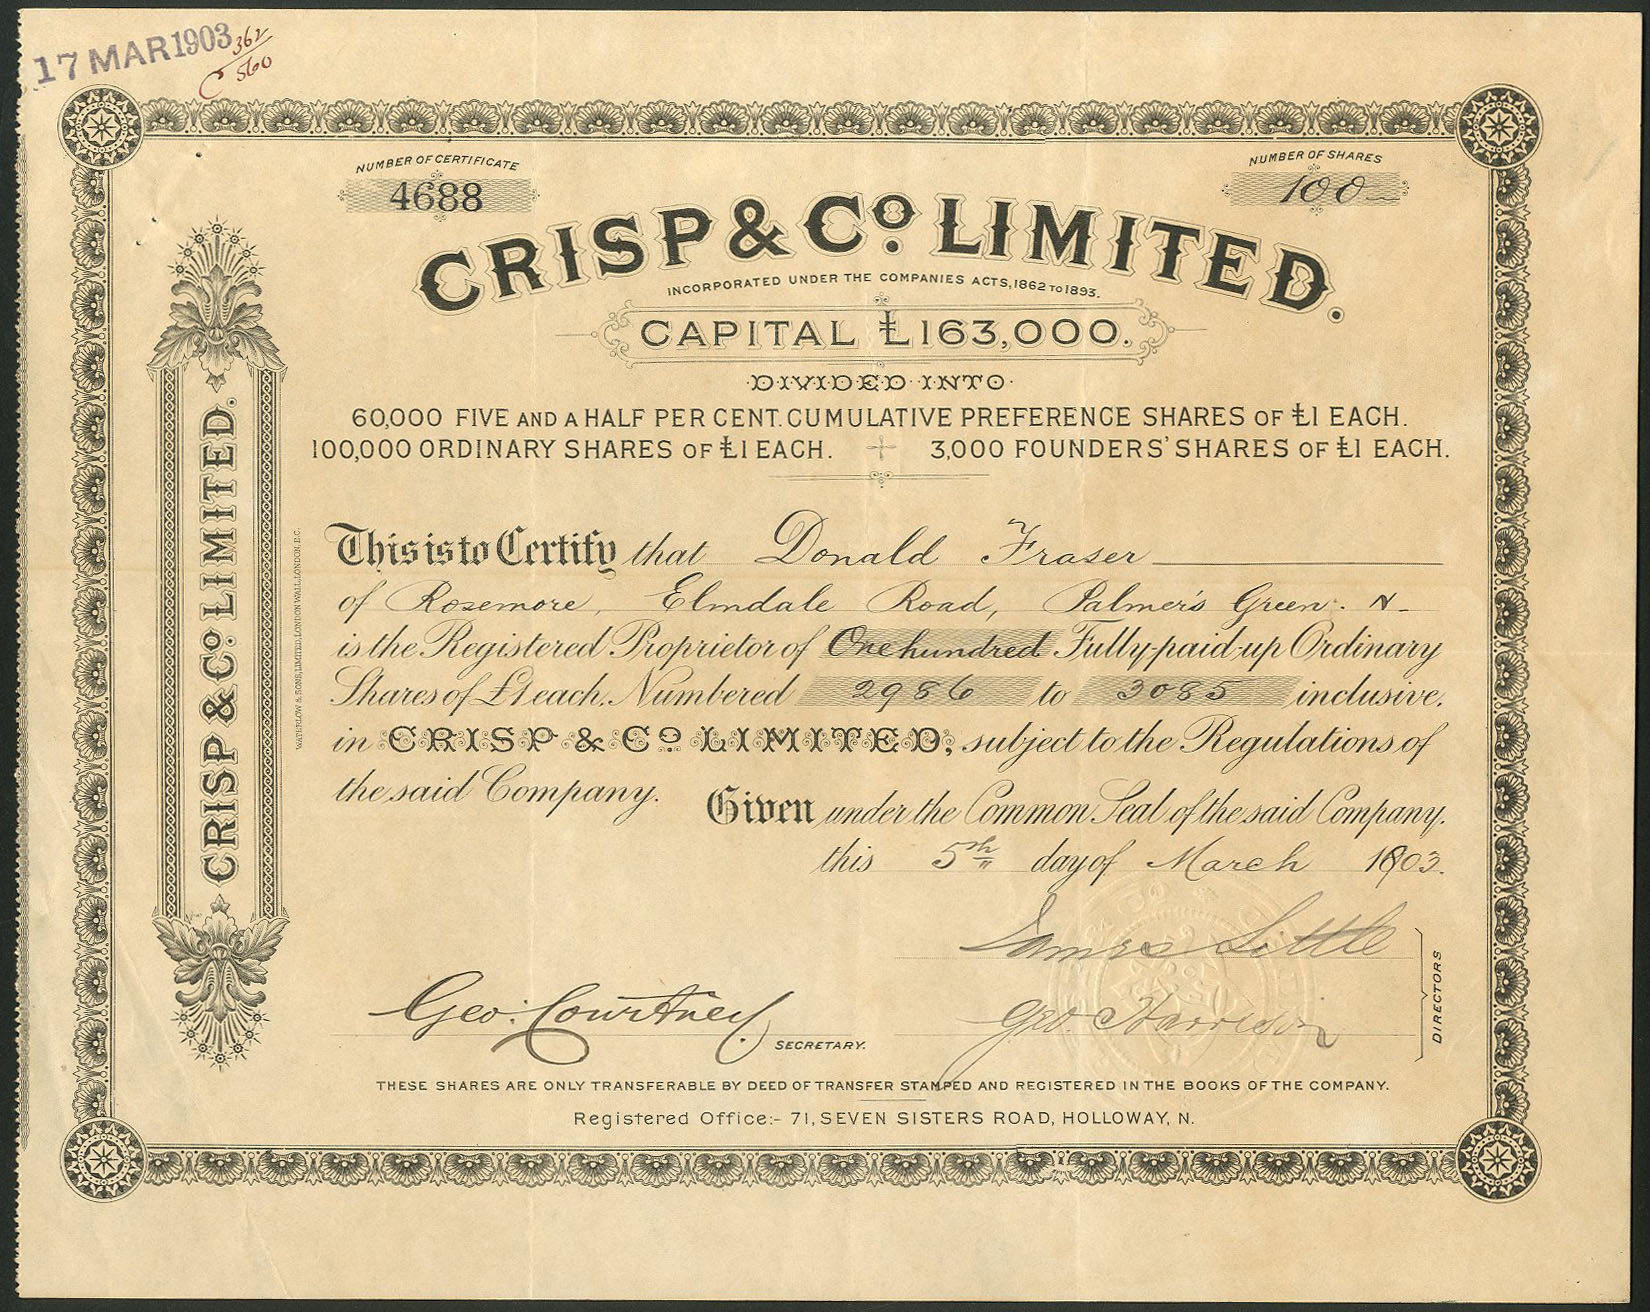 17 MAR 1903
362
C 560
NUMBER OF CERTIFICATE
4688
NUMBER OF SHARES
100
CRISP & Co. LIMITED.
INCORPORATED UNDER THE COMPANIES ACTS, 1862 TO 1893.
CAPITAL £163,000.
DIVIDED INTO
60,000 FIVE AND A HALF PER CENT. CUMULATIVE PREFERENCE SHARES OF £1 EACH.
100,000 ORDINARY SHARES OF £1 EACH. 3,000 FOUNDERS' SHARES OF £1 EACH.
CRISP & Co. LIMITED.
WATERLOW & SONS, LIMITED, LONDON WALL, LONDON, E.C.
This is to Certify that Donald Fraser
of Rosemore, Elmdale Road, Palmer's Green. N.
is the Registered Proprietor of One hundred Fully-paid-up Ordinary
Shares of £1 each. Numbered 2986 to 3085 inclusive.
in CRISP & Co. LIMITED, subject to the Regulations of
the said Company. Given under the Common Seal of the said Company.
this 5th day of March 1903.
James Little
Geo. Harrison
DIRECTORS
Geo. Courtney
SECRETARY.
THESE SHARES ARE ONLY TRANSFERABLE BY DEED OF TRANSFER STAMPED AND REGISTERED IN THE BOOKS OF THE COMPANY.
Registered Office:- 71, SEVEN SISTERS ROAD, HOLLOWAY, N.